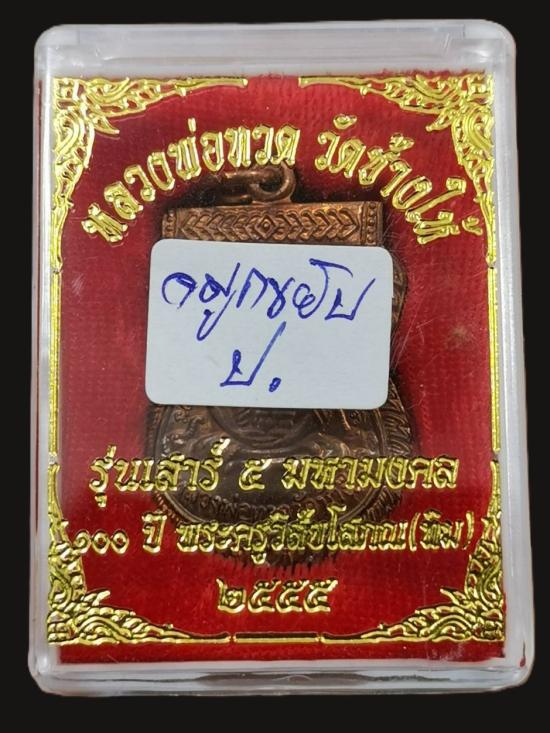 หลวงพ่อทวด วัดช้างให้
จมูกขยับ
ป.
รุ่นเสาร์ ๕ มหามงคล
๑๐๐ ปี พระครูวิสัยโสภณ(ทิม)
๒๕๕๕